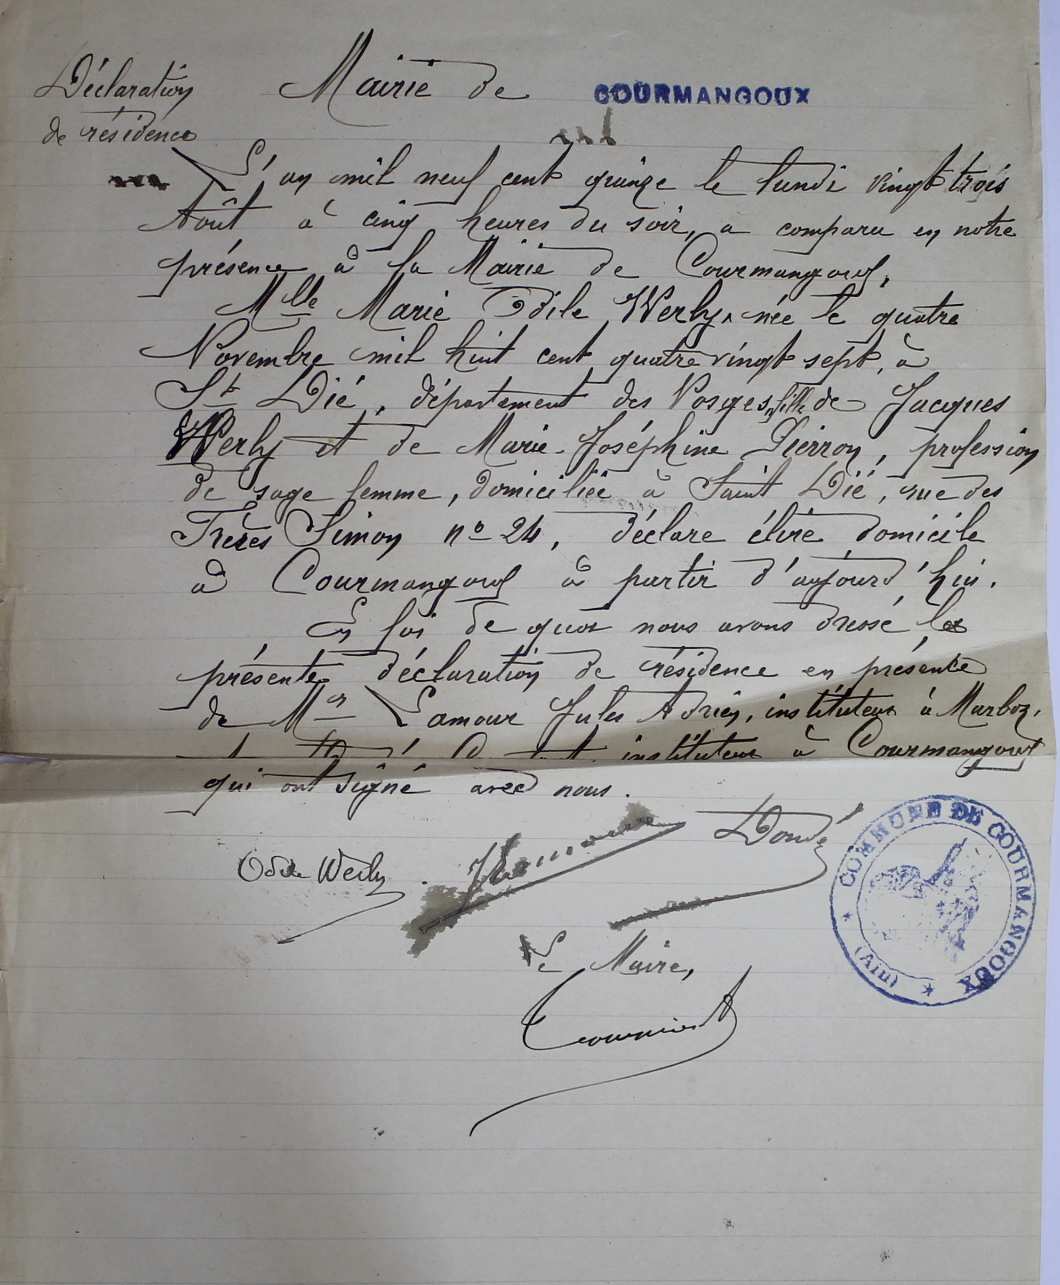 Déclaration
de résidence
Mairie de COURMANGOUX
L'an mil neuf cent quinze le lundi vingt trois
Août à cinq heures du soir, a comparu en notre
présence à la Mairie de Courmangoux,
Mlle Marie Odile Werly, née le quatre
Novembre mil huit cent quatre vingt sept, à
St Dié, département des Vosges, fille de Jacques
Werly et de Marie-Joséphine Pierron, profession
de sage femme, domiciliée à Saint Dié, rue des
Frères Simon no 24, déclare élire domicile
à Courmangoux à partir d'aujourd'hui.
En foi de quoi nous avons dressé la
présente déclaration de résidence en présence
de Mr Lamour Jules Adrien, instituteur à Marboz,
instituteur à Courmangoux
qui ont signé avec nous.
Odile Werly
Le Maire,
COMMUNE DE COURMANGOUX
(Ain)